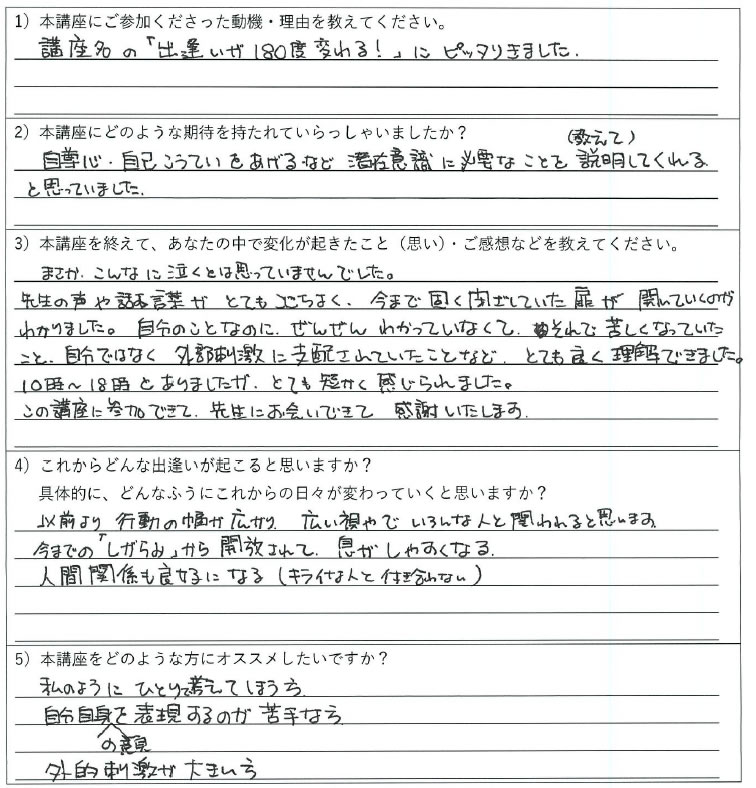 1）本講座にご参加くださった動機・理由を教えてください。
講座名の「出逢いが180度変わる！」にピッタリきました.
2）本講座にどのような期待を持たれていらっしゃいましたか？
(教えて)
自尊心・自己こうていをあげるなど 潜在意識に必要なことを説明してくれる
と思っていました.
3）本講座を終えて、あなたの中で変化が起きたこと（思い）・ご感想などを教えてください。
まさか、こんなに泣くとは思っていませんでした。
先生の声や話す言葉が とても心ちよく、今まで固く閉ざしていた扉が 開いていくのが
わかりました。自分のことなのに、ぜんぜん わかっていなくて、それで苦しくなっていた
こと、自分ではなく 外部刺激に支配されていたことなど、とても良く理解できました。
10時～18時とありましたが、とても短かく感じられました。
この講座に参加できて、先生にお会いできて 感謝いたします.
4）これからどんな出逢いが起こると思いますか？
具体的に、どんなふうにこれからの日々が変わっていくと思いますか？
以前より 行動の幅が広がり 広い視やで いろんな人と関われると思います
今までの「しがらみ」から 開放されて、息がしやすくなる.
人間関係も良好になる（キライな人と付き合わない）
5）本講座をどのような方にオススメしたいですか？
私のように ひとりで考えてしまう方
自分自身を表現するのが苦手な方
の意見
外的刺激が大きい方